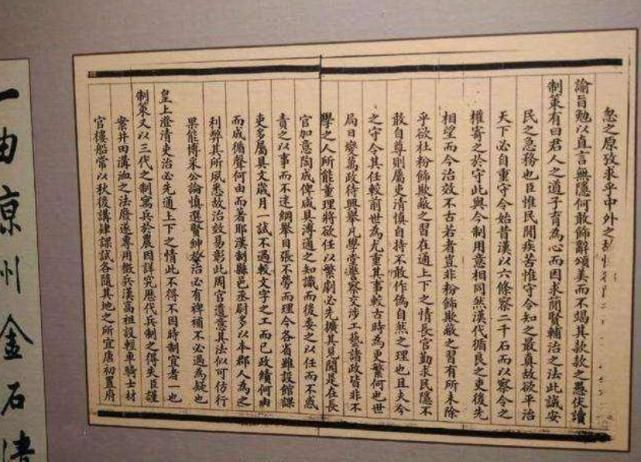 忽之原攷求乎中外之
諭旨勉以直言無隱何敢飾辭頌美而不竭其款款之愚伏讀
制策有曰君人之道子育為心而因求簡賢輔治之法此誠安
民之急務也臣惟民間疾苦惟守令知之最真故欲平治
天下必自重守令始昔漢以六條察二千石而以察令之
權寄之於守此與今制用意相同然漢代循良之吏後先
相望而今治效不古若者豈非粉飾欺蔽之習有所未除
乎欲杜粉飾欺蔽之習在通上下之情長官勤求民隱不
敢自尊則屬吏清慎自持不敢作偽自然之理也且夫今
之守令其任較前世為尤重其事較古時為更繁何也世
局日變萬政待興舉凡學堂警察交涉工藝諸政皆非不
學之人所能董理將欲任以繁劇必先擴其見聞是在長
官加意陶成俾咸具溥通之知識而後委之以任而不惑
責之以事而不迷綱舉目張不勞而理今各省雖設館課
吏多屬具文歲月一試不過較文字之工而已政績何由
而成循聲何由而著耶漢制縣邑丞尉多以本郡人為之
利弊其所夙悉故治效易彰此周官遺意其法似可仿行
果能博采公論慎選賢紳參治必有裨補不必過為疑也
皇上澄清吏治必先通上下之情此不得不因時制宜者一也
制策又以三代之制寓兵於農因詳究歷代兵制之得失臣謹
案井田溝洫之法廢遂專用徵兵漢高祖設輕車騎士材
官樓船常以秋後講肄課試各隨其地之所宜唐初置府
由涼州金石